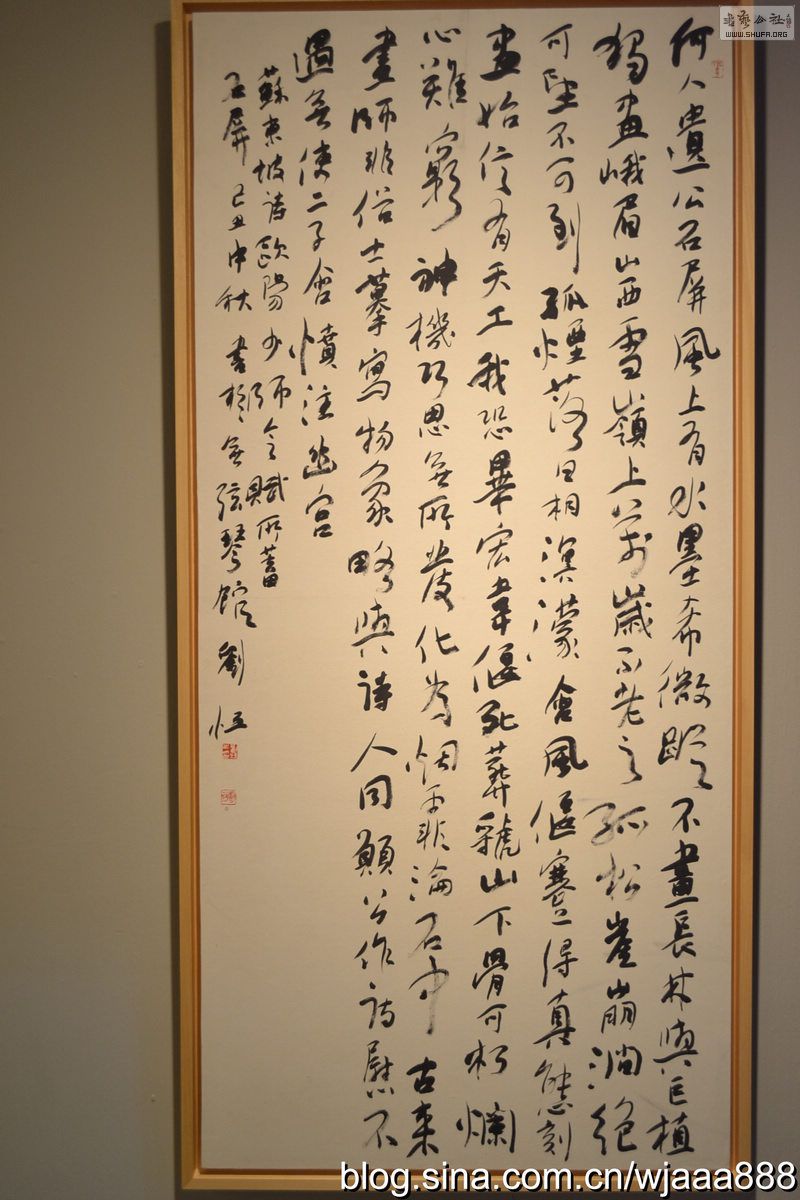 何人遺公石屏風上有水墨希微蹤不畫長林與巨植
獨畫峨眉山西雪嶺上萬歲不老之孤松崖崩澗絕
可望不可到孤煙落日相溟濛含風偃蹇得真態刻
畫始信有天工我恐畢宏韋偃死葬虢山下骨可朽爛
心難窮神機巧思無所發化為烟霏淪石中古來
畫師非俗士摹寫物象略與詩人同願公作詩慰不
遇無使二子含憤泣幽宮
蘇東坡詩歐陽少師令賦所蓄
石屏己丑中秋書於無弦琴館劉恒
書藝公社
WWW.SHUFA.ORG
blog.sina.com.cn/wjaaa888